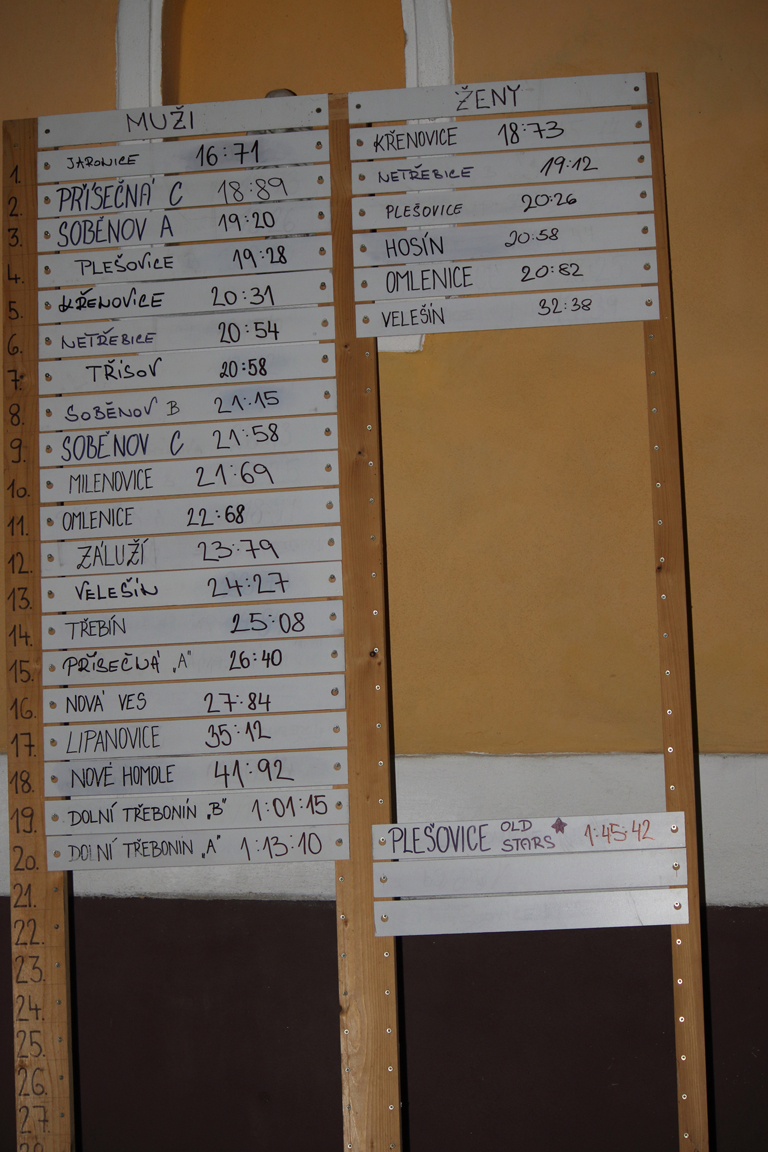 MUŽI
1. JARONICE 16:71
2. PŘÍSEČNÁ C 18:89
3. SOBĚNOV A 19:20
4. PLEŠOVICE 19:28
5. KŘENOVICE 20:31
6. NETŘEBICE 20:54
7. TŘÍSOV 20:58
8. SOBĚNOV B 21:15
9. SOBĚNOV C 21:58
10. MILENOVICE 21:69
11. OMLENICE 22:68
12. ZÁLUŽÍ 23:79
13. VELEŠÍN 24:27
14. TŘEBÍN 25:08
15. PŘÍSEČNÁ „A" 26:40
16. NOVÁ VES 27:84
17. LIPANOVICE 35:12
18. NOVÉ HOMOLE 41:92
19. DOLNÍ TŘEBONÍN „B" 1:01:15
20. DOLNÍ TŘEBONÍN „A" 1:13:10
21.
22.
23.
24.
25.
26.
27.
28.
ŽENY
KŘENOVICE 18:73
NETŘEBICE 19:12
PLEŠOVICE 20:26
HOSÍN 20:58
OMLENICE 20:82
VELEŠÍN 32:38
PLEŠOVICE OLD STARS 1:45:42